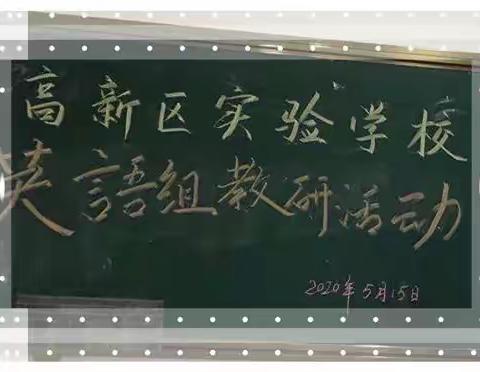 高新区实验学校
英語组教研活动
2020年5月15日